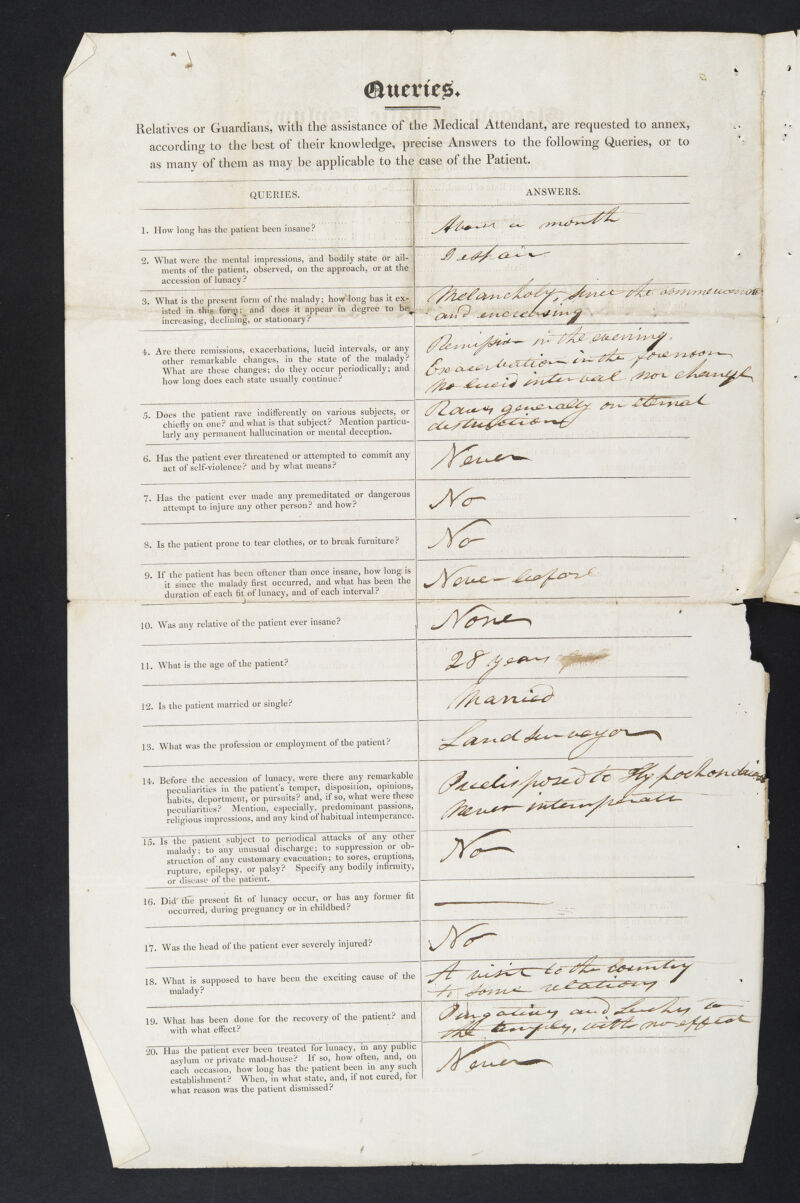 Queries.
Relatives or Guardians, with the assistance of the Medical Attendant, are requested to annex,
according to the best of their knowledge, precise Answers to the following Queries, or to
as many of them as may be applicable to the case of the Patient.
QUERIES.
ANSWERS.
1. How long has the patient been insane?
About a month
2. What were the mental impressions, and bodily state or ail-
ments of the patient, observed, on the approach, or at the
accession of lunacy?
Despair
3. What is the present form of the malady; how long has it ex-
isted in this form; and does it appear in degree to be
increasing, declining, or stationary?
Melancholy, since the commencement
and increasing
4. Are there remissions, exacerbations, lucid intervals, or any
other remarkable changes, in the state of the malady?
What are these changes; do they occur periodically; and
how long does each state usually continue?
Remission in the evening.
Exacerbation in the forenoon
no lucid interval nor change
5. Does the patient rave indifferently on various subjects, or
chiefly on one? and what is that subject? Mention particu-
larly any permanent hallucination or mental deception.
Raves generally on eternal
destruction
6. Has the patient ever threatened or attempted to commit any
act of self-violence? and by what means?
Never
7. Has the patient ever made any premeditated or dangerous
attempt to injure any other person? and how?
No
8. Is the patient prone to tear clothes, or to break furniture?
No
9. If the patient has been oftener than once insane, how long is
it since the malady first occurred, and what has been the
duration of each fit of lunacy, and of each interval?
Never before
10. Was any relative of the patient ever insane?
None
11. What is the age of the patient?
28 years
12. Is the patient married or single?
Married
13. What was the profession or employment of the patient?
Land surveyor
14. Before the accession of lunacy, were there any remarkable
peculiarities in the patient's temper, disposition, opinions,
habits, deportment, or pursuits? and, if so, what were these
peculiarities? Mention, especially, predominant passions,
religious impressions, and any kind of habitual intemperance.
Predisposed to Hypochondriasis
Never intemperate
15. Is the patient subject to periodical attacks of any other
malady; to any unusual discharge; to suppression or ob-
struction of any customary evacuation; to sores, eruptions,
rupture, epilepsy, or palsy? Specify any bodily infirmity,
or disease of the patient.
No
16. Did the present fit of lunacy occur, or has any former fit
occurred, during pregnancy or in childbed?
17. Was the head of the patient ever severely injured?
No
18. What is supposed to have been the exciting cause of the
malady?
A visit to the country
to some relations
19. What has been done for the recovery of the patient? and
with what effect?
Purgatives and Leeches to
the temples, with no effect
20. Has the patient ever been treated for lunacy, in any public
asylum or private mad-house? If so, how often, and, on
each occasion, how long has the patient been in any such
establishment? When, in what state, and, if not cured, for
what reason was the patient dismissed?
Never